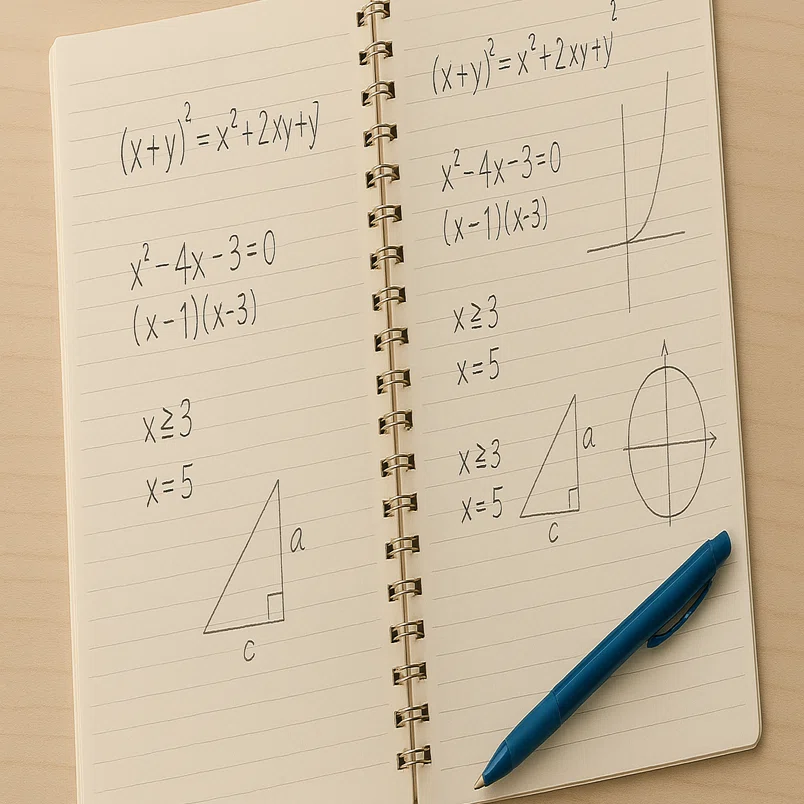 (x+y)² = x²+2xy+y
x²-4x-3=0
(x-1)(x-3)
x≧3
x=5
a
c
(x+y)² = x²+2xy+y²
x²-4x-3=0
(x-1)(x-3)
x≧3
x=5
x≧3
x=5
a
c